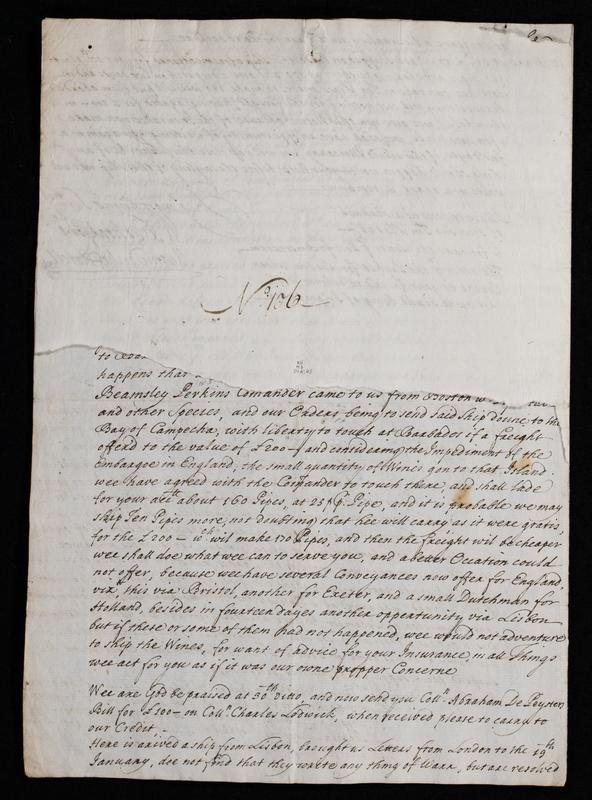 No 106
to
happens that
Beamsley Perkins Comander came to us from Boston
and other Species, and our Orders being to send said Ship doune to the
Bay of Campecha, with liberty to touch at Barbados if a freight
offerd to the value of £200– and considering the Impediment of the
Embargoe in England, the small quantity of Wines gon to that Island.
wee have agreed with the Comander to touch there, and shall lade
for your acct about 160 Pipes, at 25/ p. Pipe, and it is probable we may
ship Ten Pipes more, not doubting that hee will carry as it were gratis,
for the £200 – wch wil make 170 Pipes, and then the freight wil be cheaper
wee shall doe what wee can to serve you, and a better Occation could
not offer, because wee have several Conveyances now offer for England,
vizt, this via Bristol, another for Exeter, and a small Dutchman for
Holland, besides in fourteen dayes another oppertunity via Lisbon
but if these or some of them had not happened, wee would not adventure
to ship the Wines, for want of advice for your Insurance, in all Things
wee act for you as if it was our owne propper Concerne
Wee are God be praised at 30th ditto, and now send you Coll. Abraham De Peyster
Bill for £100– on Coll. Charles Lodwick, when received please to carry to
our Credit,
Here is arived a ship from Lisbon, brought us Letters from London to the 19th
January, doe not find that they wrote any thing of Warr, but are resolved